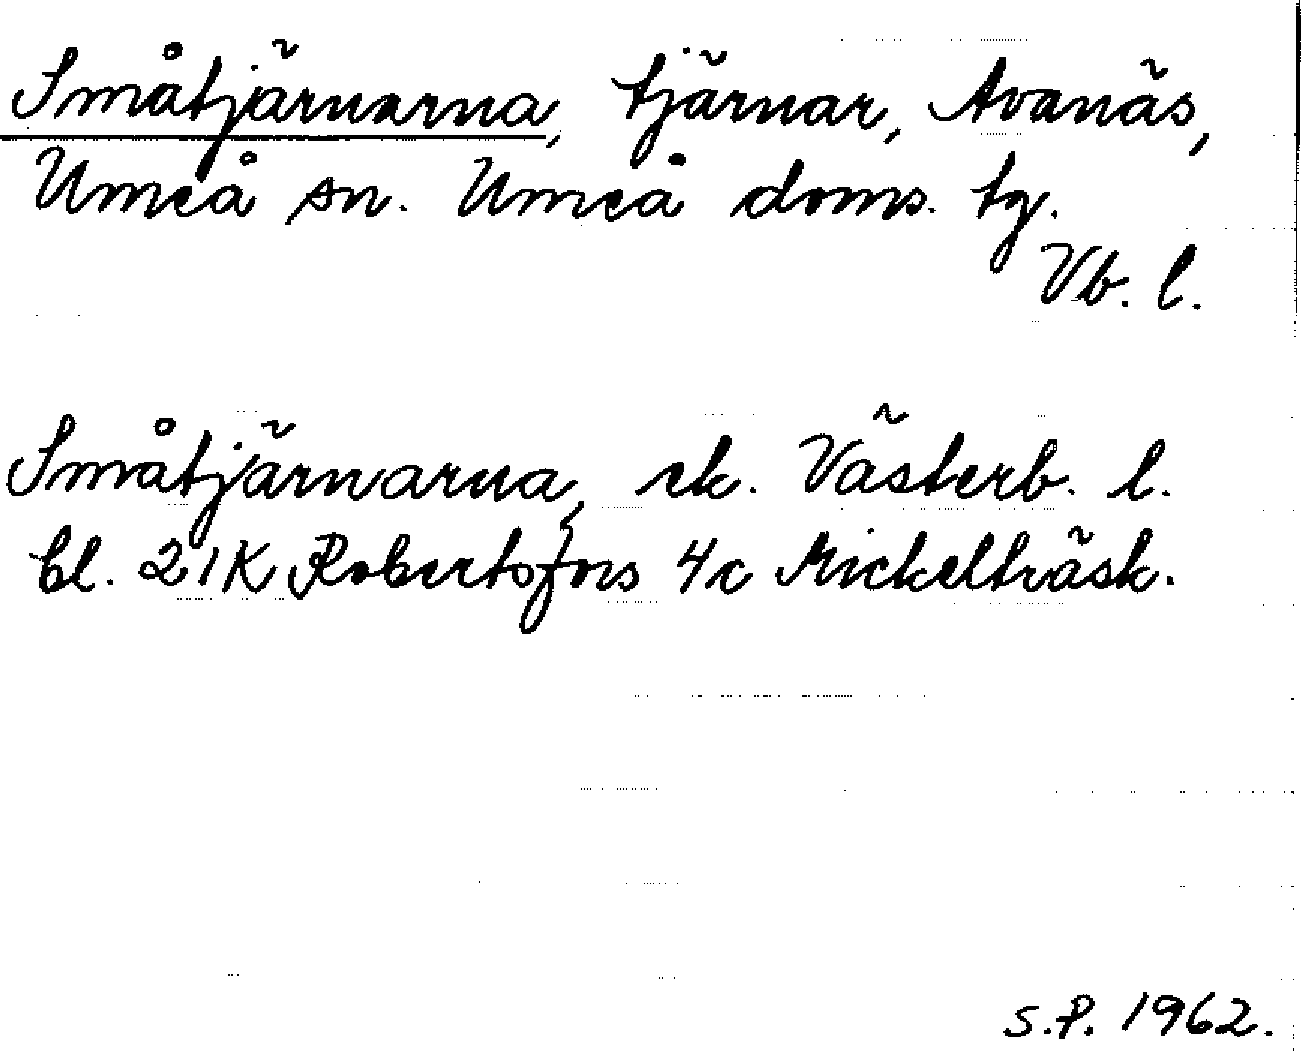 Småtjärnarna, tjärnar, Avanäs,
Umeå sn. Umeå doms. tg.
Vb. l.
Småtjärnarna, ek. Västerb. l.
bl. 21K Robertsfors 4c Mickelträsk.
S.P. 1962.